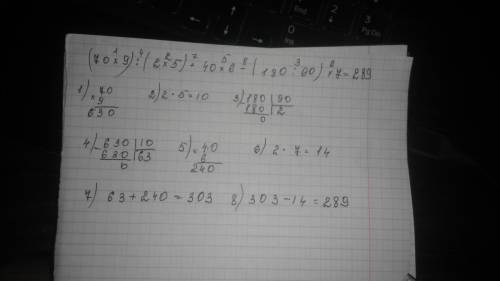 (70 × 9) : (2 × 5) + 40 × 6 − (180 : 90) × 7 = 289
1 4 2 7 5 8 3 6
1) × 70 2) 2 · 5 = 10 3) 180 | 90
9 180 | 2
630 0
4) − 630 | 10 5) × 40 6) 2 · 7 = 14
630 | 63 6
0 240
7) 63 + 240 = 303 8) 303 − 14 = 289